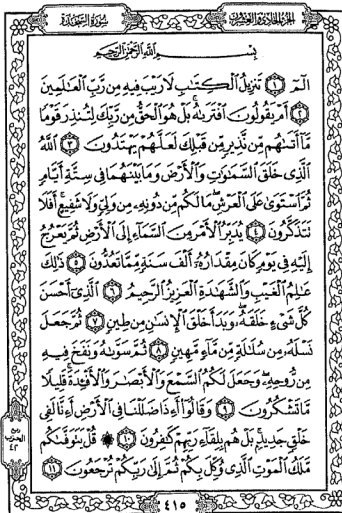 الجزء الحادي والعشرون
سورة السجدة
بِسْمِ اللَّهِ الرَّحْمَٰنِ الرَّحِيمِ
الٓمٓ ۝١ تَنزِيلُ ٱلْكِتَٰبِ لَا رَيْبَ فِيهِ مِن رَّبِّ ٱلْعَٰلَمِينَ
۝٢ أَمْ يَقُولُونَ ٱفْتَرَىٰهُ بَلْ هُوَ ٱلْحَقُّ مِن رَّبِّكَ لِتُنذِرَ قَوْمًا
مَّآ أَتَىٰهُم مِّن نَّذِيرٍ مِّن قَبْلِكَ لَعَلَّهُمْ يَهْتَدُونَ ۝٣ ٱللَّهُ
ٱلَّذِى خَلَقَ ٱلسَّمَٰوَٰتِ وَٱلْأَرْضَ وَمَا بَيْنَهُمَا فِى سِتَّةِ أَيَّامٍ
ثُمَّ ٱسْتَوَىٰ عَلَى ٱلْعَرْشِ مَا لَكُم مِّن دُونِهِۦ مِن وَلِىٍّ وَلَا شَفِيعٍ أَفَلَا
تَتَذَكَّرُونَ ۝٤ يُدَبِّرُ ٱلْأَمْرَ مِنَ ٱلسَّمَآءِ إِلَى ٱلْأَرْضِ ثُمَّ يَعْرُجُ
إِلَيْهِ فِى يَوْمٍ كَانَ مِقْدَارُهُۥٓ أَلْفَ سَنَةٍ مِّمَّا تَعُدُّونَ ۝٥ ذَٰلِكَ
عَٰلِمُ ٱلْغَيْبِ وَٱلشَّهَٰدَةِ ٱلْعَزِيزُ ٱلرَّحِيمُ ۝٦ ٱلَّذِىٓ أَحْسَنَ
كُلَّ شَىْءٍ خَلَقَهُۥ وَبَدَأَ خَلْقَ ٱلْإِنسَٰنِ مِن طِينٍ ۝٧ ثُمَّ جَعَلَ
نَسْلَهُۥ مِن سُلَٰلَةٍ مِّن مَّآءٍ مَّهِينٍ ۝٨ ثُمَّ سَوَّىٰهُ وَنَفَخَ فِيهِ
مِن رُّوحِهِۦ وَجَعَلَ لَكُمُ ٱلسَّمْعَ وَٱلْأَبْصَٰرَ وَٱلْأَفْـِٔدَةَ قَلِيلًا
مَّا تَشْكُرُونَ ۝٩ وَقَالُوٓا۟ أَءِذَا ضَلَلْنَا فِى ٱلْأَرْضِ أَءِنَّا لَفِى
خَلْقٍ جَدِيدٍۭ بَلْ هُم بِلِقَآءِ رَبِّهِمْ كَٰفِرُونَ ۝١٠ ۞ قُلْ يَتَوَفَّىٰكُم
مَّلَكُ ٱلْمَوْتِ ٱلَّذِى وُكِّلَ بِكُمْ ثُمَّ إِلَىٰ رَبِّكُمْ تُرْجَعُونَ ۝١١
ربع
الحزب
٤٢
٤١٥